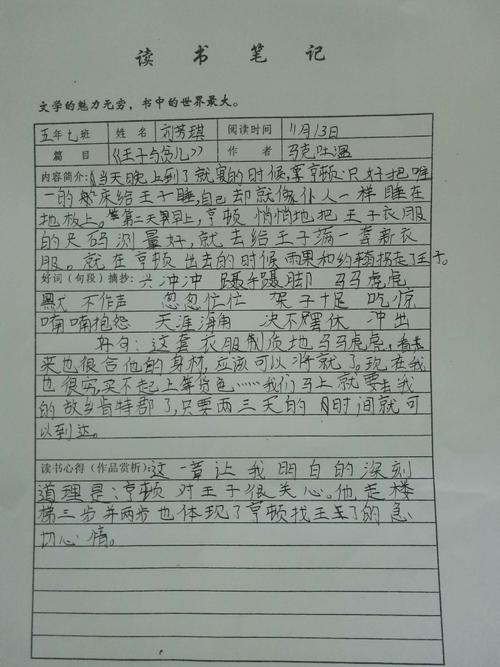 读 书 笔 记
文学的魅力无穷，书中的世界最大。
五年七班 姓名 刘芳琪 阅读时间 11月13日
篇目 《王子与贫儿》 作者 马克吐温
内容简介：当天晚上到了就寝的时候，享顿只好把唯
一的船床给王子睡，自己却就像仆人一样睡在
地板上。第二天早上，亨顿悄悄地把王子衣服
的尺码测量好，就去给王子端一套新衣
服。就在亨顿出去的时候雨果和约翰拐走了王子。
好词（句段）摘抄：兴冲冲 蹑手蹑脚 马马虎虎
默不作声 忽忽忙忙 架子十足 吃惊
喃喃抱怨 天涯海角 决不罢休 冲出
好句：这套衣服制质地马马虎虎，看起
来也很合他的身材，应该可以将就了。现在我
也很穷，买不起上等货色……我们马上就要去我
的故乡肯特郡了，只要两三天的时间就可
以到达。
读书心得（作品赏析）：这一章让我明白的深刻
道理是：亨顿对王子很关心。他走楼
梯三步并两步也体现了亨顿找王子的急
切心情。